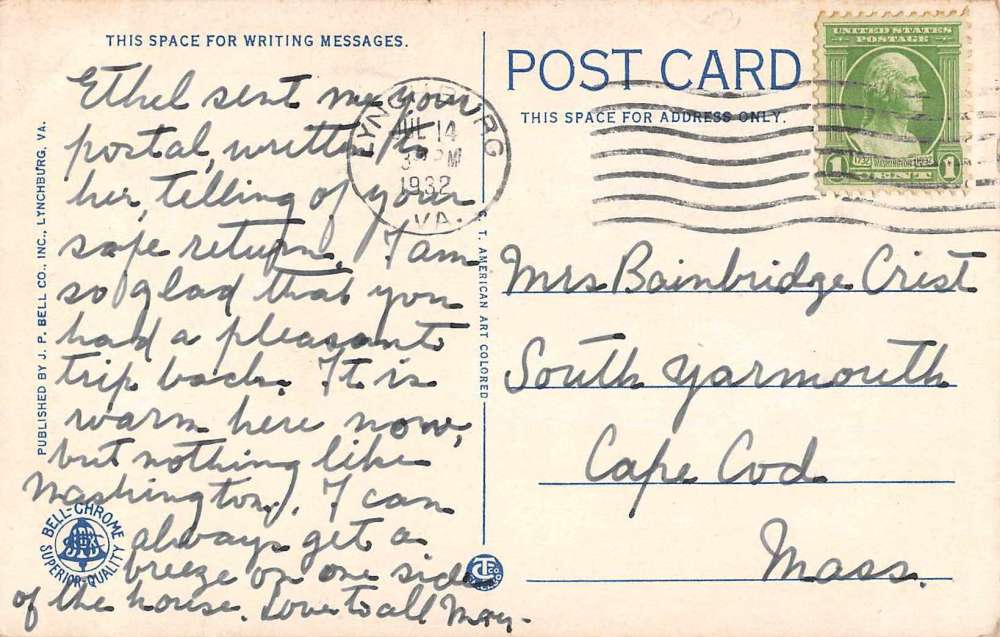 THIS SPACE FOR WRITING MESSAGES.
Ethel sent me your
postal, written to
her, telling of your
safe return. I am
so glad that you
had a pleasant
trip back. It is
warm here now,
but nothing like
Washington. I can
always get a
breeze on one side
of the house. Love to all Mary.
PUBLISHED BY J. P. BELL CO., INC., LYNCHBURG, VA.
BELL-CHROME
SUPERIOR-QUALITY
C. T. AMERICAN ART COLORED
POST CARD
THIS SPACE FOR ADDRESS ONLY.
LYNCHBURG
JUL 14
PM
1932
VA.
UNITED STATES
POSTAGE
1732 WASHINGTON 1932
1 CENT 1
Mrs Bainbridge Crist
South Yarmouth
Cape Cod
Mass.